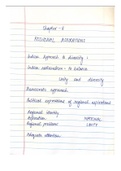 Chapter - 8
REGIONAL ASPIRATIONS
Indian approach to diversity :
Indian nationalism : to balance
Unity and diversity
Democratic approach
Political expressions of regional aspirations
Regional identity
Aspiration NATIONAL
Regional problems UNITY
Adequate attention